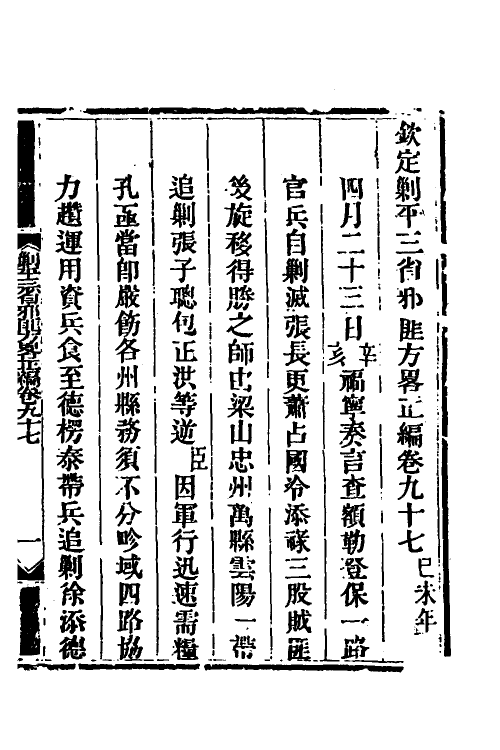 欽定剿平三省邪匪方畧正編卷九十七己未年
四月二十三日辛亥福寧奏言查額勒登保一路
官兵自剿滅張長更蕭占國冷添祿三股賊匪
後旋移得勝之師由梁山忠州萬縣雲陽一帶
追剿張子聰包正洪等逆臣因軍行迅速需糧
孔亟當卽嚴飭各州縣務須不分畛域四路協
力趲運用資兵食至德楞泰帶兵追剿徐添德
剿平三省邪匪方畧正編卷九十七
一